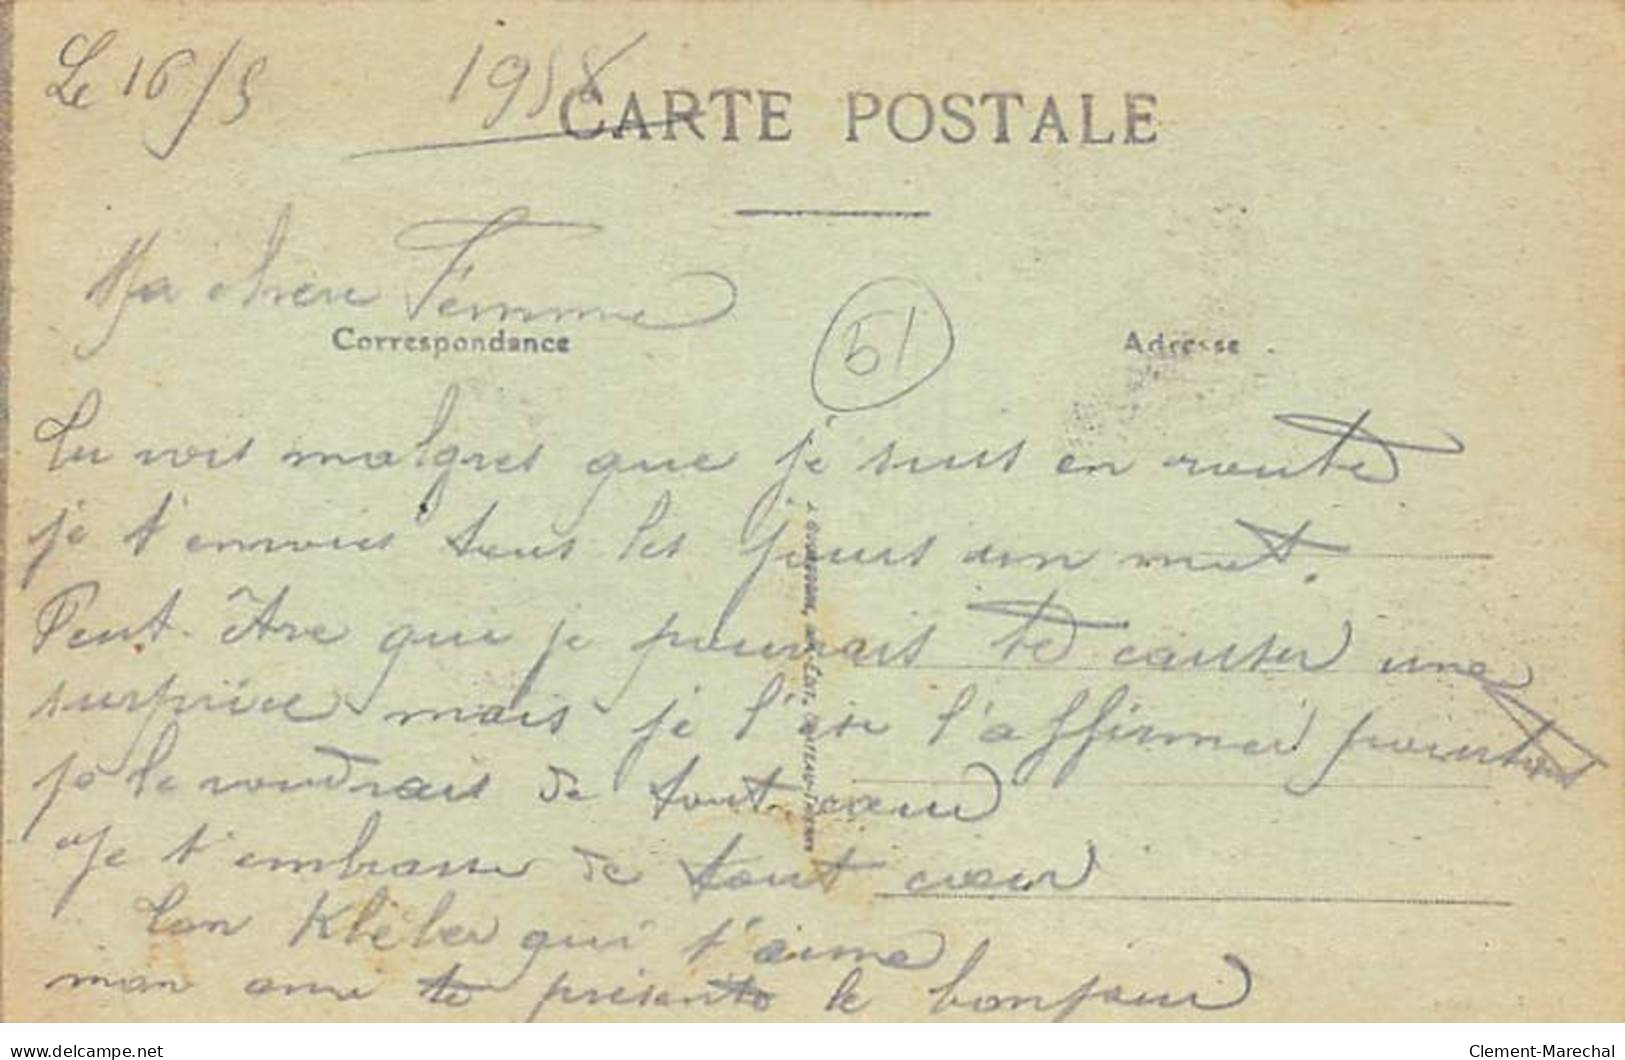 Le 16/5 1918
CARTE POSTALE
Ma chere Femme
Correspondance
51
Adresse
Tu vois malgres que je suis en route
je t'envoies tous les jours un mot.
Peut-être que je pourrais te causer une
surprice mais je l'affirmer pourtant
je le voudrais de tout cœur
Je t'embrasse de tout cœur
Ton Kléber qui t'aime
mon ami te présente le bonjour
delcampe.net
Clement-Marechal